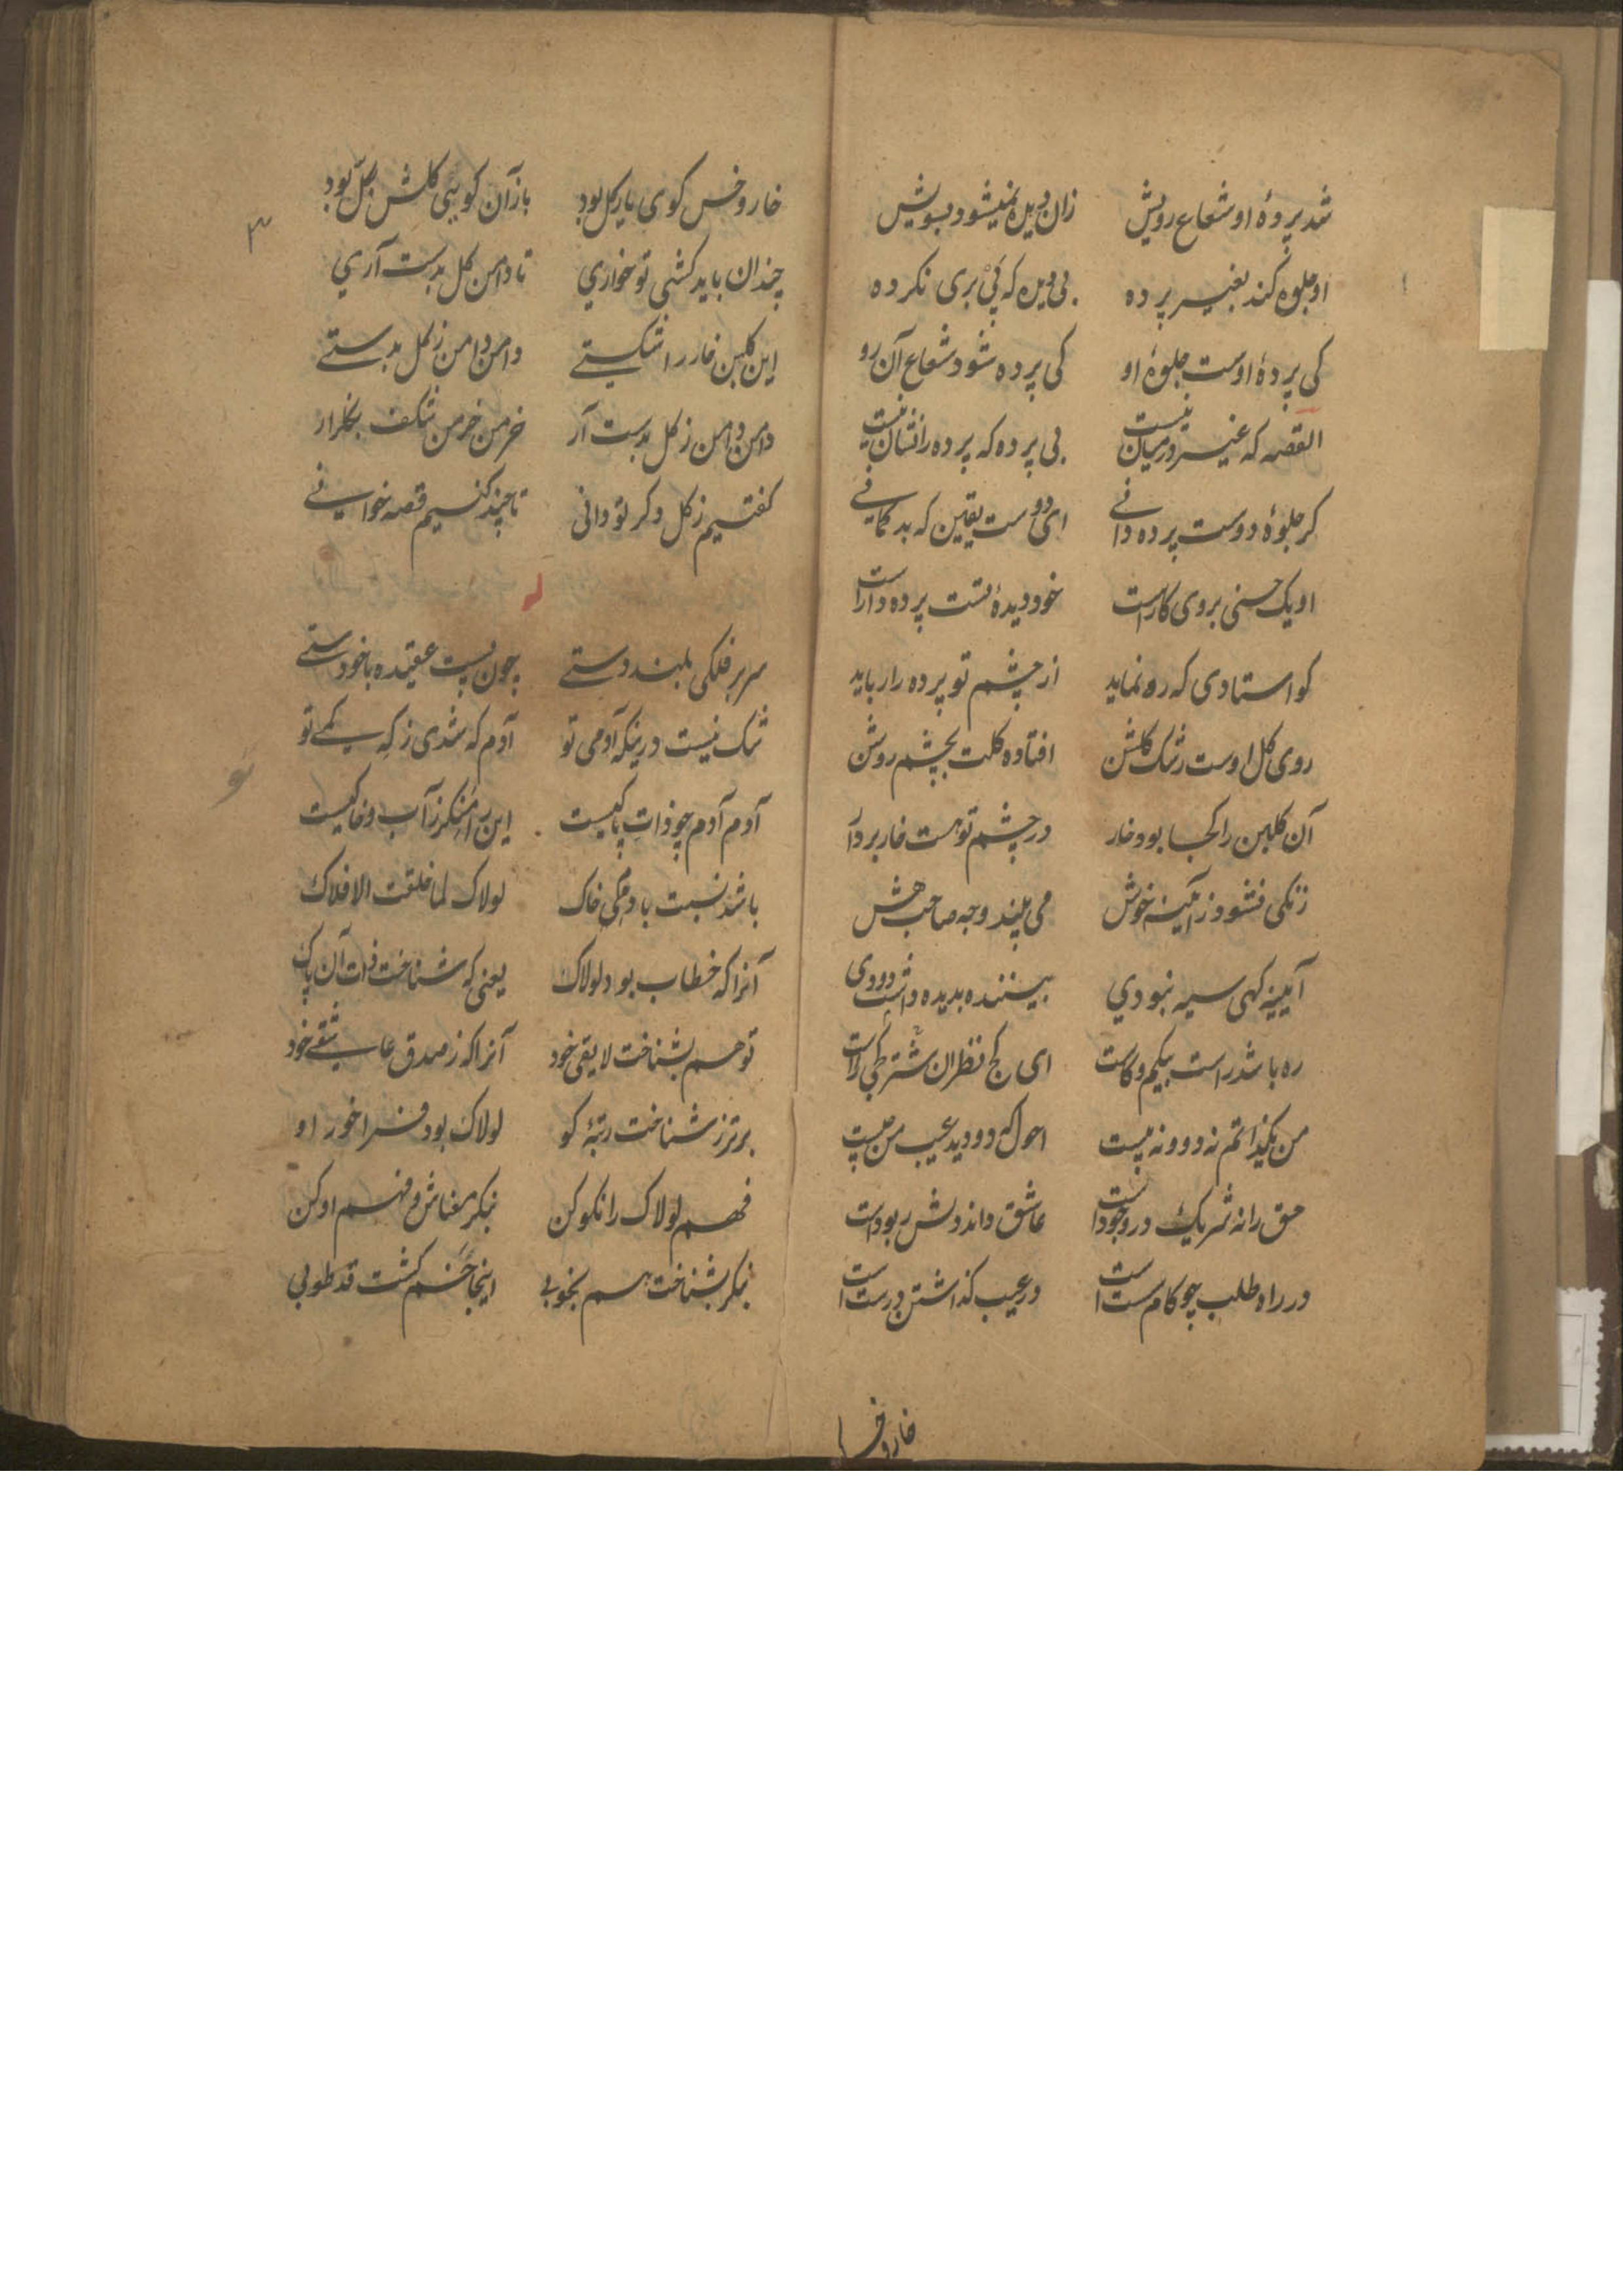 شد پردهٔ او شعاع رویش زان دیده نمیشود بسویش
او جلوه کند بغیر پرده بی دیده که پی بری نکرده
کی پردهٔ اوست جلوهٔ او کی پرده شود شعاع آن رو
القصه که غیر در میان نیست بی پرده که پرده را نشان نیست
کر جلوهٔ دوست پرده دانی ای دوست یقین که بد کمانی
او یک حسنی بروی کار است خود دیدهٔ تست پرده دار است
کو استادی که ره نماید از چشم تو پرده را رباید
روی کل اوست رشک کلشن افتاده کلت بچشم روشن
آن کلبن را کجا بود خار در چشم تو هست خار بردار
زنکی نشود ز آینه خوش می بیند وجه صاحب هش
آیینه کهی سیه نبودی بیننده بدیده داشت دودی
ره باشد راست بیکم و کاست ای کج نظران شتر کجی راست
من یکذاتم نه دو و نه بیست احول که دو دید عیب من چیست
حق را نه شریک در وجود است عاشق داند دلش ربود است
در راه طلب چو کام سست است در عیب کذاشتن درست است
خار و خس
۳
خار و خس کوی یار کل بود باز آن کو بی کلش بکل بود
چندان باید کشی تو خواری تا دامن کل بدست آری
این کلبن خار را شکستی دامن دامن ز کل بدستی
دامن دامن ز کل بدست آر خرمن خرمن شکف بکلزار
کفتیم ز کل دکر تو دانی تا چند کنیم قصه خوانی
سر بر فلکی بلند دستی چون پست عقیده با خودستی
شک نیست درینکه آدمی تو آدم که شدی ز که کمی تو
آدم آدم چو ذات پاکیست این را منکر ز آب و خاکیست
باشد نسبت بآدمی خاک لولاک لما خلقت الافلاک
آنرا که خطاب بود لولاک یعنی که شناخت ذات آن پاک
تو هم بشناخت لایقی خود آنرا که ز صدق عاشقی خود
برتر ز شناخت رتبهٔ کو لولاک بود فرا خور او
فهم لولاک را نکو کن بنکر معناش و فهم او کن
بنکر بشناخت هم بخوبی اینجا خم کشت قد طوبی